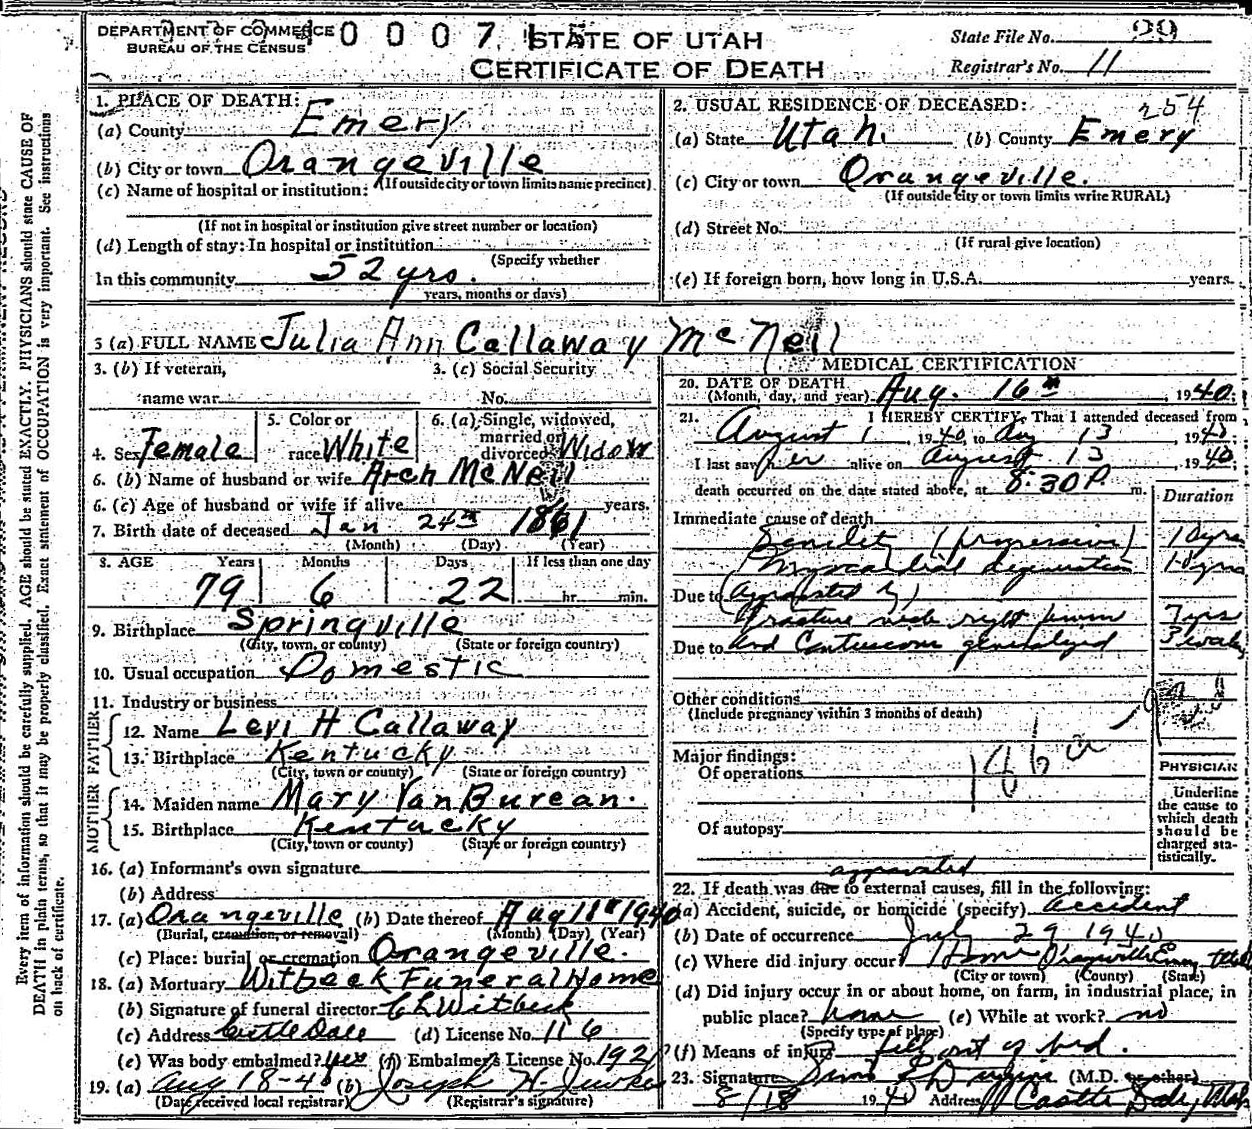 DEPARTMENT OF COMMERCE
BUREAU OF THE CENSUS
0 0 0 7
STATE OF UTAH
CERTIFICATE OF DEATH
State File No. 29
Registrar's No. 11
1. PLACE OF DEATH:
(a) County Emery
(b) City or town Orangeville
(If outside city or town limits name precinct)
(c) Name of hospital or institution:
(If not in hospital or institution give street number or location)
(d) Length of stay: In hospital or institution
(Specify whether
In this community 52 yrs.
years, months or days)
2. USUAL RESIDENCE OF DECEASED: 254
(a) State Utah. (b) County Emery
(c) City or town Orangeville.
(If outside city or town limits write RURAL)
(d) Street No.
(If rural give location)
(e) If foreign born, how long in U.S.A. years.
3 (a) FULL NAME Julia Ann Callaway McNeil
3. (b) If veteran,
name war
3. (c) Social Security
No.
4. Sex Female
5. Color or
race White
6. (a) Single, widowed,
married or
divorced Widow
6. (b) Name of husband or wife Arch McNeil
6. (c) Age of husband or wife if alive years.
7. Birth date of deceased Jan 24th 1861
(Month) (Day) (Year)
8. AGE Years Months Days If less than one day
79 6 22 hr. min.
9. Birthplace Springville
(City, town, or county) (State or foreign country)
10. Usual occupation Domestic
11. Industry or business
FATHER
12. Name Levi H Callaway
13. Birthplace Kentucky
(City, town or county) (State or foreign country)
MOTHER
14. Maiden name Mary VanBurean.
15. Birthplace Kentucky
(City, town or county) (State or foreign country)
16. (a) Informant's own signature
(b) Address
17. (a) Orangeville (b) Date thereof Aug 18th 1940
(Burial, cremation, or removal) (Month) (Day) (Year)
(c) Place: burial or cremation Orangeville.
18. (a) Mortuary Witbeck Funeral Home
(b) Signature of funeral director CL Witbeck
(c) Address Castle Dale (d) License No. 116
(e) Was body embalmed? yes (f) Embalmer's License No. 192
19. (a) Aug 18-40 (b) Joseph H.
(Date received local registrar) (Registrar's signature)
MEDICAL CERTIFICATION
20. DATE OF DEATH
(Month, day, and year) Aug. 16th, 1940.
21. I HEREBY CERTIFY, That I attended deceased from
August 1, 1940, to Aug 13 1940.
I last saw her alive on August 13, 1940.
death occurred on the date stated above, at 8:30 P. m.
Duration
Immediate cause of death
Senility (progressive) 10 yrs
Myocardial degeneration 10 yrs
Due to (Aggravated by)
Fracture neck right femur 7 yrs
Due to and Contusions generalized 3 weeks
Other conditions
(Include pregnancy within 3 months of death)
Major findings:
Of operations
Of autopsy
PHYSICIAN
Underline
the cause to
which death
should be
charged sta-
tistically.
aggravated
22. If death was due to external causes, fill in the following:
(a) Accident, suicide, or homicide (specify) accident
(b) Date of occurrence July 29 1940
(c) Where did injury occur? Home Orangeville Emery Utah
(City or town) (County) (State)
(d) Did injury occur in or about home, on farm, in industrial place, in
public place? home (e) While at work? no
(Specify type of place)
(f) Means of injury fell out of bed.
23. Signature (M.D. or other)
8/18 1940 Address Castle Dale, Utah
Every item of information should be carefully supplied. AGE should be stated EXACTLY. PHYSICIANS should state CAUSE OF
DEATH in plain terms, so that it may be properly classified. Exact statement of OCCUPATION is very important. See instructions
on back of certificate.